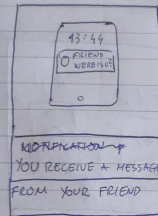 13:44
FRIEND
WERE ISU?
NOTIFICATION
YOU RECEIVE A MESSAGE
FROM YOUR FRIEND